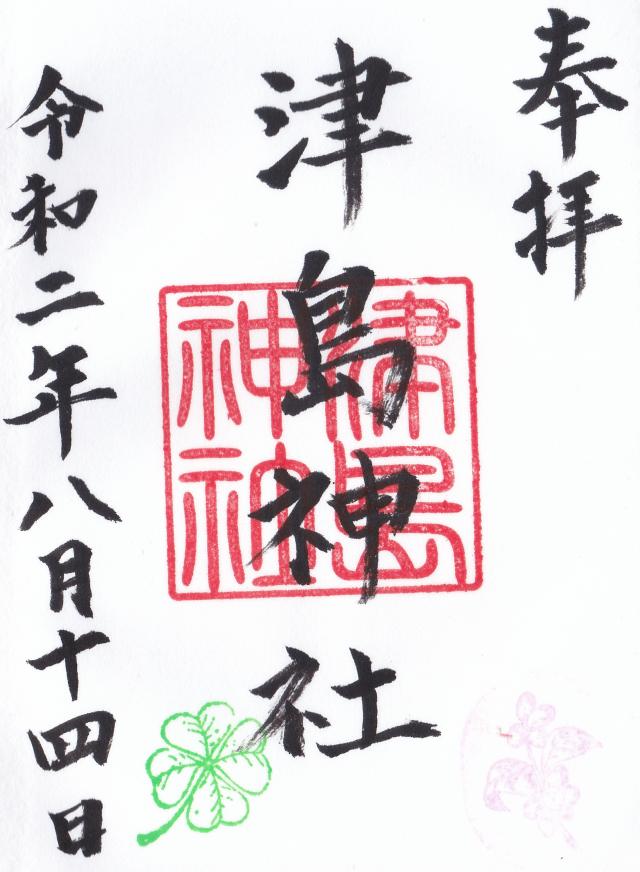 奉拝
津島神社
津島神社
令和二年八月十四日